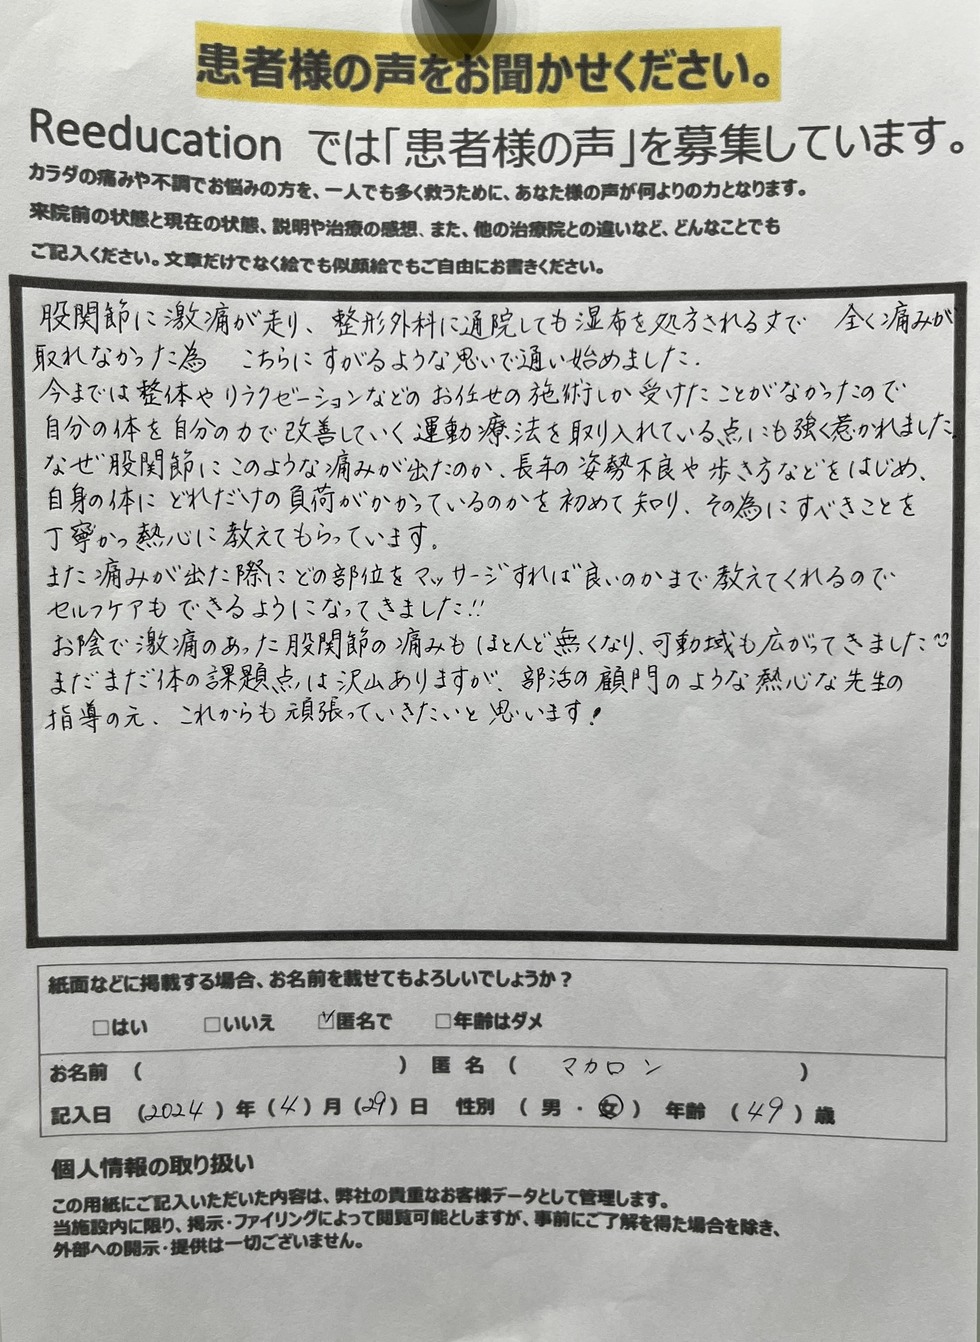 患者様の声をお聞かせください。
Reeducation では「患者様の声」を募集しています。
カラダの痛みや不調でお悩みの方を、一人でも多く救うために、あなた様の声が何よりの力となります。
来院前の状態と現在の状態、説明や治療の感想、また、他の治療院との違いなど、どんなことでも
ご記入ください。文章だけでなく絵でも似顔絵でもご自由にお書きください。
股関節に激痛が走り、整形外科に通院しても湿布を処方されるまで 全く痛みが
取れなかった為 こちらにすがるような思いで通い始めました.
今までは整体やリラクゼーションなどのお任せの施術しか受けたことがなかったので
自分の体を自分の力で改善していく運動療法を取り入れている点にも強く惹かれました.
なぜ股関節にこのような痛みが出たのか、長年の姿勢不良や歩き方などをはじめ、
自身の体にどれだけの負荷がかかっているのかを初めて知り、その為にすべきことを
丁寧かつ熱心に教えてもらっています。
また痛みが出た際にどの部位をマッサージすれば良いのかまで教えてくれるので
セルフケアもできるようになってきました!!
お陰で激痛のあった股関節の痛みもほとんど無くなり、可動域も広がってきました
まだまだ体の課題点は沢山ありますが、部活の顧問のような熱心な先生の
指導の元、これからも頑張っていきたいと思います!
紙面などに掲載する場合、お名前を載せてもよろしいでしょうか?
□はい □いいえ ☑匿名で □年齢はダメ
お名前 ( ) 匿 名 ( マカロン )
記入日 (2024) 年 (4) 月 (29) 日 性別 ( 男 ・ 女 ) 年齢 (49) 歳
個人情報の取り扱い
この用紙にご記入いただいた内容は、弊社の貴重なお客様データとして管理します。
当施設内に限り、掲示・ファイリングによって閲覧可能としますが、事前にご了解を得た場合を除き、
外部への開示・提供は一切ございません。